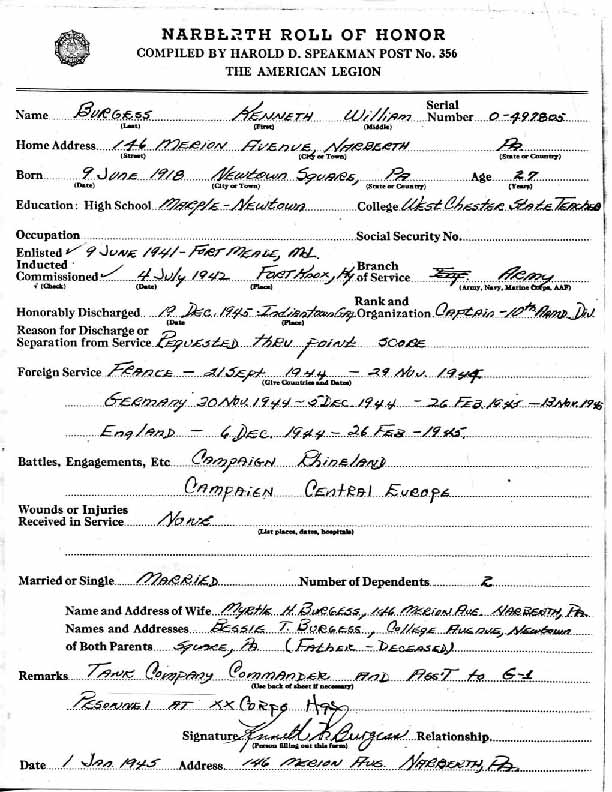 NARBERTH ROLL OF HONOR
COMPILED BY HAROLD D. SPEAKMAN POST No. 356
THE AMERICAN LEGION
Name BURGESS KENNETH William Serial Number O-497805
(Last) (First) (Middle)
Home Address 146 MERION AVENUE, NARBERTH Pa
(Street) (City or Town) (State or Country)
Born 9 JUNE 1918 NEWTOWN SQUARE, PA Age 27
(Date) (City or Town) (State or Country) (Years)
Education: High School MARPLE-NEWTOWN College WEST CHESTER STATE TEACHER
Occupation Social Security No.
Enlisted ✓ 9 JUNE 1941 - FORT MEADE, Md.
Inducted
Commissioned ✓ 4 July 1942 FORT KNOX, Ky Branch of Service ARMY
√ (Check) (Date) (Place) (Army, Navy, Marine Corps, AAF)
Honorably Discharged 19 DEC. 1945 - Indiantown Gap Rank and Organization CAPTAIN - 10th Armd. Div.
(Date (Place)
Reason for Discharge or
Separation from Service REQUESTED thru POINT SCORE
Foreign Service FRANCE - 21 Sept. 1944 - 29 NOV. 1944
(Give Countries and Dates)
GERMANY 20 NOV. 1944 - 5 DEC 1944 - 26 FEB 1945 - 13 NOV. 1945
England - 6 DEC. 1944 - 26 FEB - 1945.
Battles, Engagements, Etc CAMPAIGN Rhineland
CAMPAIGN CENTRAL EUROPE
Wounds or Injuries
Received in Service NONE
(List places, dates, hospitals)
Married or Single MARRIED Number of Dependents 2
Name and Address of Wife MYRTLE H. BURGESS, 146 MERION AVE. NARBERTH, PA.
Names and Addresses BESSIE T. BURGESS, COLLEGE AVENUE, NEWTOWN
of Both Parents SQUARE, PA (FATHER - DECEASED)
Remarks TANK COMPANY COMMANDER AND ASST to G-1
(Use back of sheet if necessary)
PESONNEl AT XX CORPS Hqs
Signature Kenneth W Burgess Relationship
(Person filling out this form)
Date 1 JAN. 1945 Address 146 MERION AVE. NARBERTH, PA.